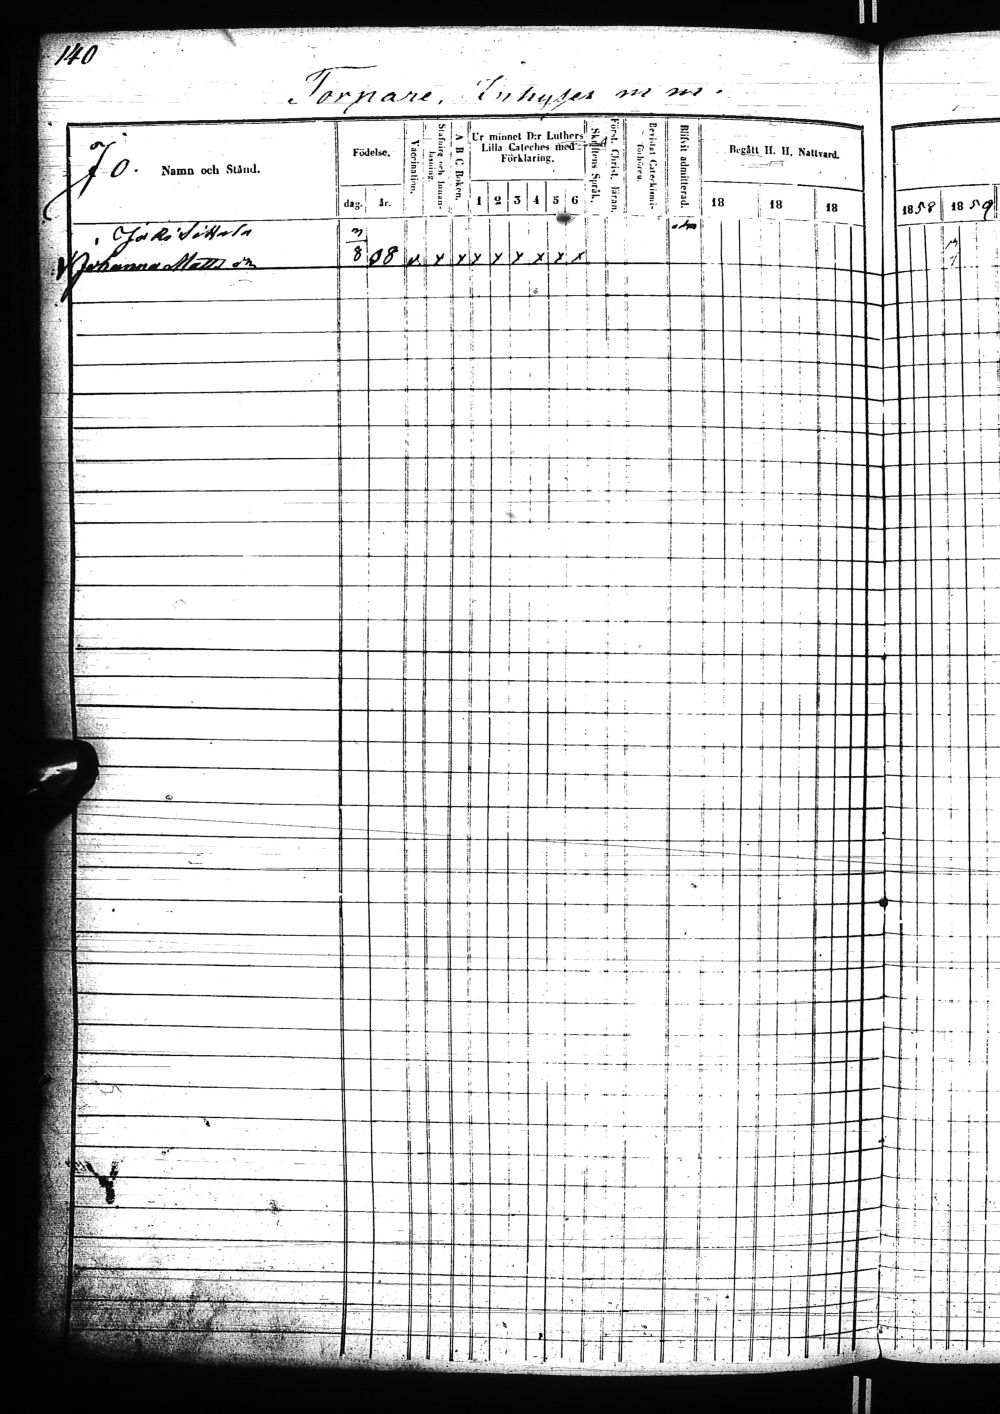 140
Torpare, Inhyses m m.
Jo.
Namn och Stånd.
Födelse.
dag. år.
Vaccination.
Stafning och Innanläsning.
A B C Boken.
Ur minnet D:r Luthers Lilla Cateches med Förklaring.
1 2 3 4 5 6
Skriftens Språk.
Först. Christ. läran.
Bevistat Catechismiförhören.
Blifvit admitterad.
Begått H. H. Nattvard.
18 18 18
1858 1859
Johanna Matts dr 8 08 x x x x x x x x x